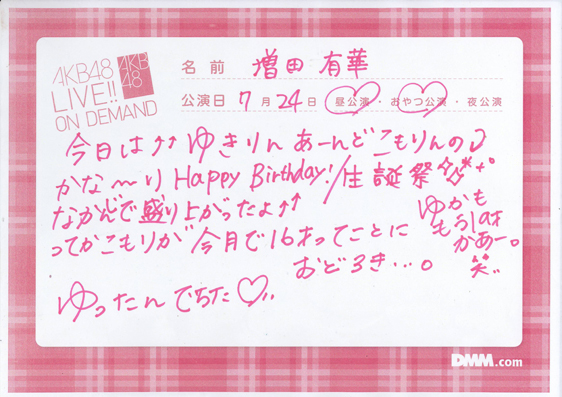 AKB48
LIVE!!
ON DEMAND
AKB
48
名前 増田 有華
公演日 7月24日 昼公演・おやつ公演・夜公演
今日は↑↑ゆきりんあーんどこもりんの♪
かな〜り Happy Birthday!/生誕祭
なかんじで盛り上がったよ↑↑
ってかこもりが今月で16才ってことに
おどろき…。
ゆかも
もう19才
かあー。
笑
ゆったんでちた♡
DMM.com